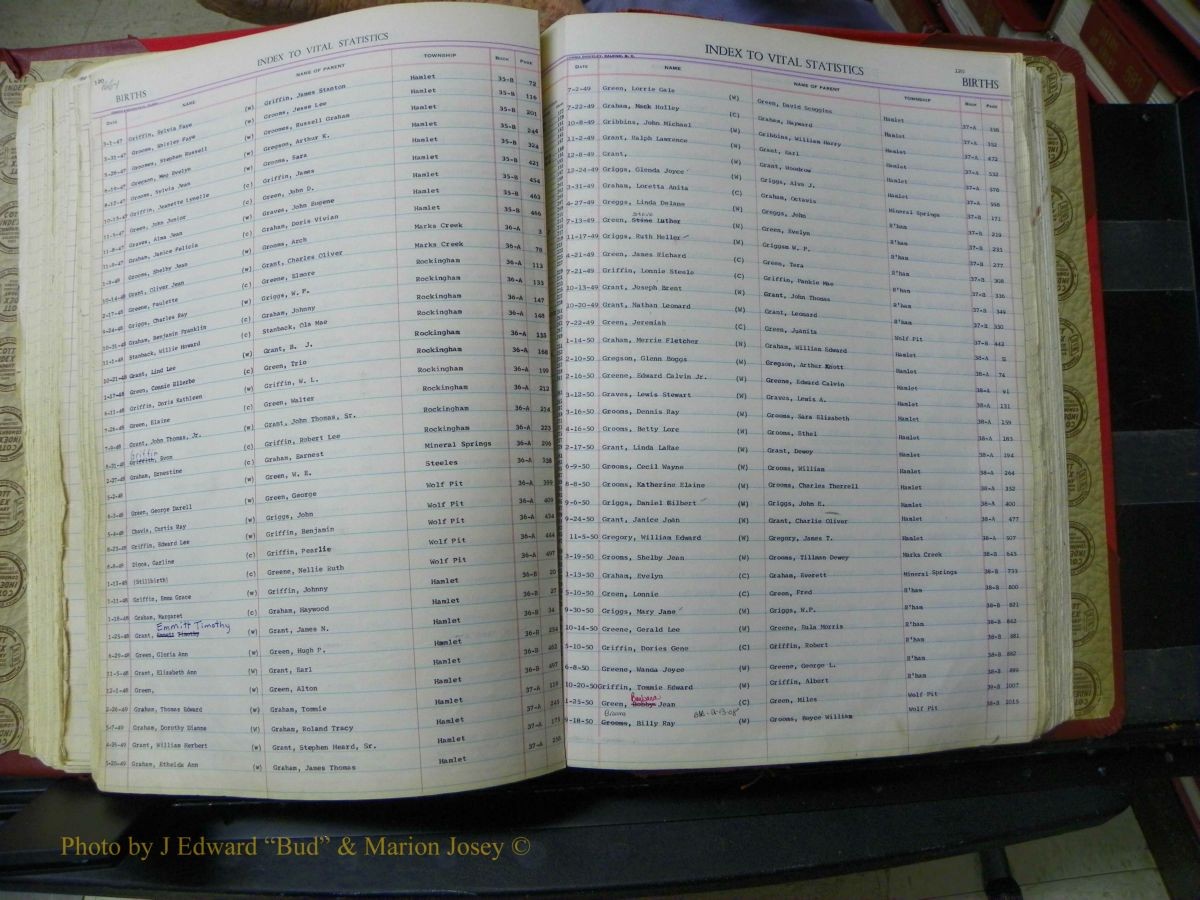 INDEX TO VITAL STATISTICS
120
BIRTHS
DATE NAME NAME OF PARENT TOWNSHIP BOOK PAGE
Griffin, Sylvia Faye (W) Griffin, James Stanton Hamlet 35-B 72
Grooms, Shirley Faye (W) Grooms, Jesse Lee Hamlet 35-B 116
Groomes, Stephen Russell (W) Groomes, Russell Graham Hamlet 35-B 201
Gregson, Meg Evelyn (W) Gregson, Arthur K. Hamlet 35-B 244
Grooms, Sylvia Jean (W) Grooms, Sara Hamlet 35-B 324
Griffin, Jeanette Lynelle (c) Griffin, James Hamlet 35-B 421
Green, John Junior (c) Green, John D. Hamlet 35-B 454
Graves, Alma Jean (c) Graves, John Eugene Hamlet 35-B 463
Graham, Janice Felicia (w) Graham, Doris Vivian Hamlet 35-B 466
Grooms, Shelby Jean (w) Grooms, Arch Marks Creek 36-A 3
Grant, Oliver Jean (c) Grant, Charles Oliver Marks Creek 36-A 78
Greene, Paulette (w) Greene, Elmore Rockingham 36-A 113
Griggs, Charles Ray (w) Griggs, W. P. Rockingham 36-A 133
Graham, Benjamin Franklin (c) Graham, Johnny Rockingham 36-A 147
Stanback, Willie Howard (c) Stanback, Ola Mae Rockingham 36-A 148
Grant, Lind Lee (w) Grant, B. J. Rockingham 36-A 155
Green, Connie Ellerbe (c) Green, Trio Rockingham 36-A 168
Griffin, Doris Kathleen (w) Griffin, W. L. Rockingham 36-A 199
Green, Elaine (c) Green, Walter Rockingham 36-A 212
Grant, John Thomas, Jr. (w) Grant, John Thomas, Sr. Rockingham 36-A 214
Griffin
(c) Griffin, Robert Lee Rockingham 36-A 223
Graham, Ernestine (c) Graham, Earnest Mineral Springs 36-A 296
Green, W. E. Steeles 36-A 338
Green, George Darell Green, George Wolf Pit 36-A 399
Chavis, Curtis Ray (w) Griggs, John Wolf Pit 36-A 409
Griffin, Edward Lee (w) Griffin, Benjamin Wolf Pit 36-A 434
(c) Griffin, Pearlie Wolf Pit 36-A 444
(Stillbirth) (c) Greene, Nellie Ruth Wolf Pit 36-A 497
Griffin, Emma Grace (w) Griffin, Johnny Hamlet 36-B 20
Graham, Margaret (c) Graham, Haywood Hamlet 36-B 27
Emmitt Timothy
1-25-48 Grant, (w) Grant, James N. Hamlet 36-B 34
6-29-48 Green, Gloria Ann (w) Green, Hugh P. Hamlet 36-B
11-5-48 Grant, Elizabeth Ann (w) Grant, Earl Hamlet 36-B 462
12-1-48 Green, (w) Green, Alton Hamlet 36-B 497
2-26-49 Graham, Thomas Edward (w) Graham, Tommie Hamlet 37-A 118
Graham, Dorothy Dianne (W) Graham, Roland Tracy Hamlet 37-A
4-25-49 Grant, William Herbert (w) Grant, Stephen Heard, Sr. Hamlet 37-A
5-20-49 Graham, Etheida Ann (w) Graham, James Thomas Hamlet 37-A
INDEX TO VITAL STATISTICS
120
BIRTHS
DATE NAME NAME OF PARENT TOWNSHIP BOOK PAGE
7-2-49 Green, Lorrie Gale (W) Green, David Scoggins Hamlet 37-A 198
7-22-49 Graham, Mack Holley (C) Graham, Hayward Hamlet 37-A 352
10-8-49 Gribbins, John Michael (W) Gribbins, William Harry Hamlet 37-A 472
11-2-49 Grant, Ralph Lawrence (W) Grant, Earl Hamlet 37-A 532
12-8-49 Grant, (W) Grant, Woodrow Hamlet 37-A 576
12-24-49 Griggs, Glenda Joyce (W) Griggs, Alva J. Hamlet 37-A 598
3-31-49 Graham, Loretta Anita (C) Graham, Octavis Mineral Springs 37-B 171
4-27-49 Greggs, Linda Delane (W) Greggs, John R'ham 37-B 219
Steve
7-13-49 Green, Stine Luther (W) Green, Evelyn R'ham 37-B 231
11-17-49 Griggs, Ruth Heller (W) Griggsm W. P. R'ham 37-B 277
4-21-49 Green, James Richard (C) Green, Tera R'ham 37-B 308
7-21-49 Griffin, Lonnie Steele (C) Griffin, Pankie Mae R'ham 37-B 336
10-13-49 Grant, Joseph Brent (W) Grant, John Thomas R'ham 37-B 349
10-20-49 Grant, Nathan Leonard (W) Grant, Leonard R'ham 37-B 350
7-22-49 Green, Jeremiah (C) Green, Juanita Wolf Pit 37-B 442
1-14-50 Graham, Merrie Fletcher (W) Graham, William Edward Hamlet 38-A
2-10-50 Gregson, Glenn Boggs (W) Gregson, Arthur Knott Hamlet 38-A 74
2-16-50 Greene, Edward Calvin Jr. (W) Greene, Edward Calvin Hamlet 38-A
3-12-50 Graves, Lewis Stewart (W) Graves, Lewis A. Hamlet 38-A 131
3-16-50 Grooms, Dennis Ray (W) Grooms, Sara Elizabeth Hamlet 38-A 159
4-16-50 Grooms, Betty Lore (W) Grooms, Ethel Hamlet 38-A 183
2-17-50 Grant, Linda LaRae (W) Grant, Dewey Hamlet 38-A 194
6-9-50 Grooms, Cecil Wayne (W) Grooms, William Hamlet 38-A 264
8-8-50 Grooms, Katherine Elaine (W) Grooms, Charles Therrell Hamlet 38-A 352
9-6-50 Griggs, Daniel Hilbert (W) Griggs, John E. Hamlet 38-A 400
9-24-50 Grant, Janice Joan (W) Grant, Charlie Oliver Hamlet 38-A 477
11-5-50 Gregory, William Edward (W) Gregory, James T. Hamlet 38-A 507
3-19-50 Grooms, Shelby Jean (W) Grooms, Tillman Dewey Marks Creek 38-B 645
1-13-50 Graham, Evelyn (C) Graham, Everett Mineral Springs 38-B 733
5-10-50 Green, Lonnie (C) Green, Fred R'ham 38-B 800
9-30-50 Griggs, Mary Jane (W) Griggs, W.P. R'ham 38-B 821
10-14-50 Greene, Gerald Lee (W) Greene, Eula Morris R'ham 38-B 842
5-10-50 Griffin, Dories Gene (C) Griffin, Robert R'ham 38-B 881
6-8-50 Greene, Wanda Joyce (W) Greene, George L. R'ham 38-B 882
10-20-50 Griffin, Tommie Edward (W) Griffin, Albert R'ham 38-B 899
Barbara
1-25-50 Green, Bobbye Jean (C) Green, Miles Wolf Pit 39-B 1007
Broome
9-18-50 Grooms, Billy Ray (W) Grooms, Royce William Wolf Pit 38-B 1015
Photo by J Edward “Bud” & Marion Josey ©